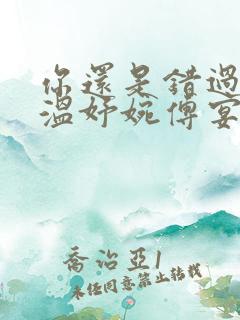 你還是錯過
溫妤婉傅宴
喬治亞1
未經同意禁止轉載